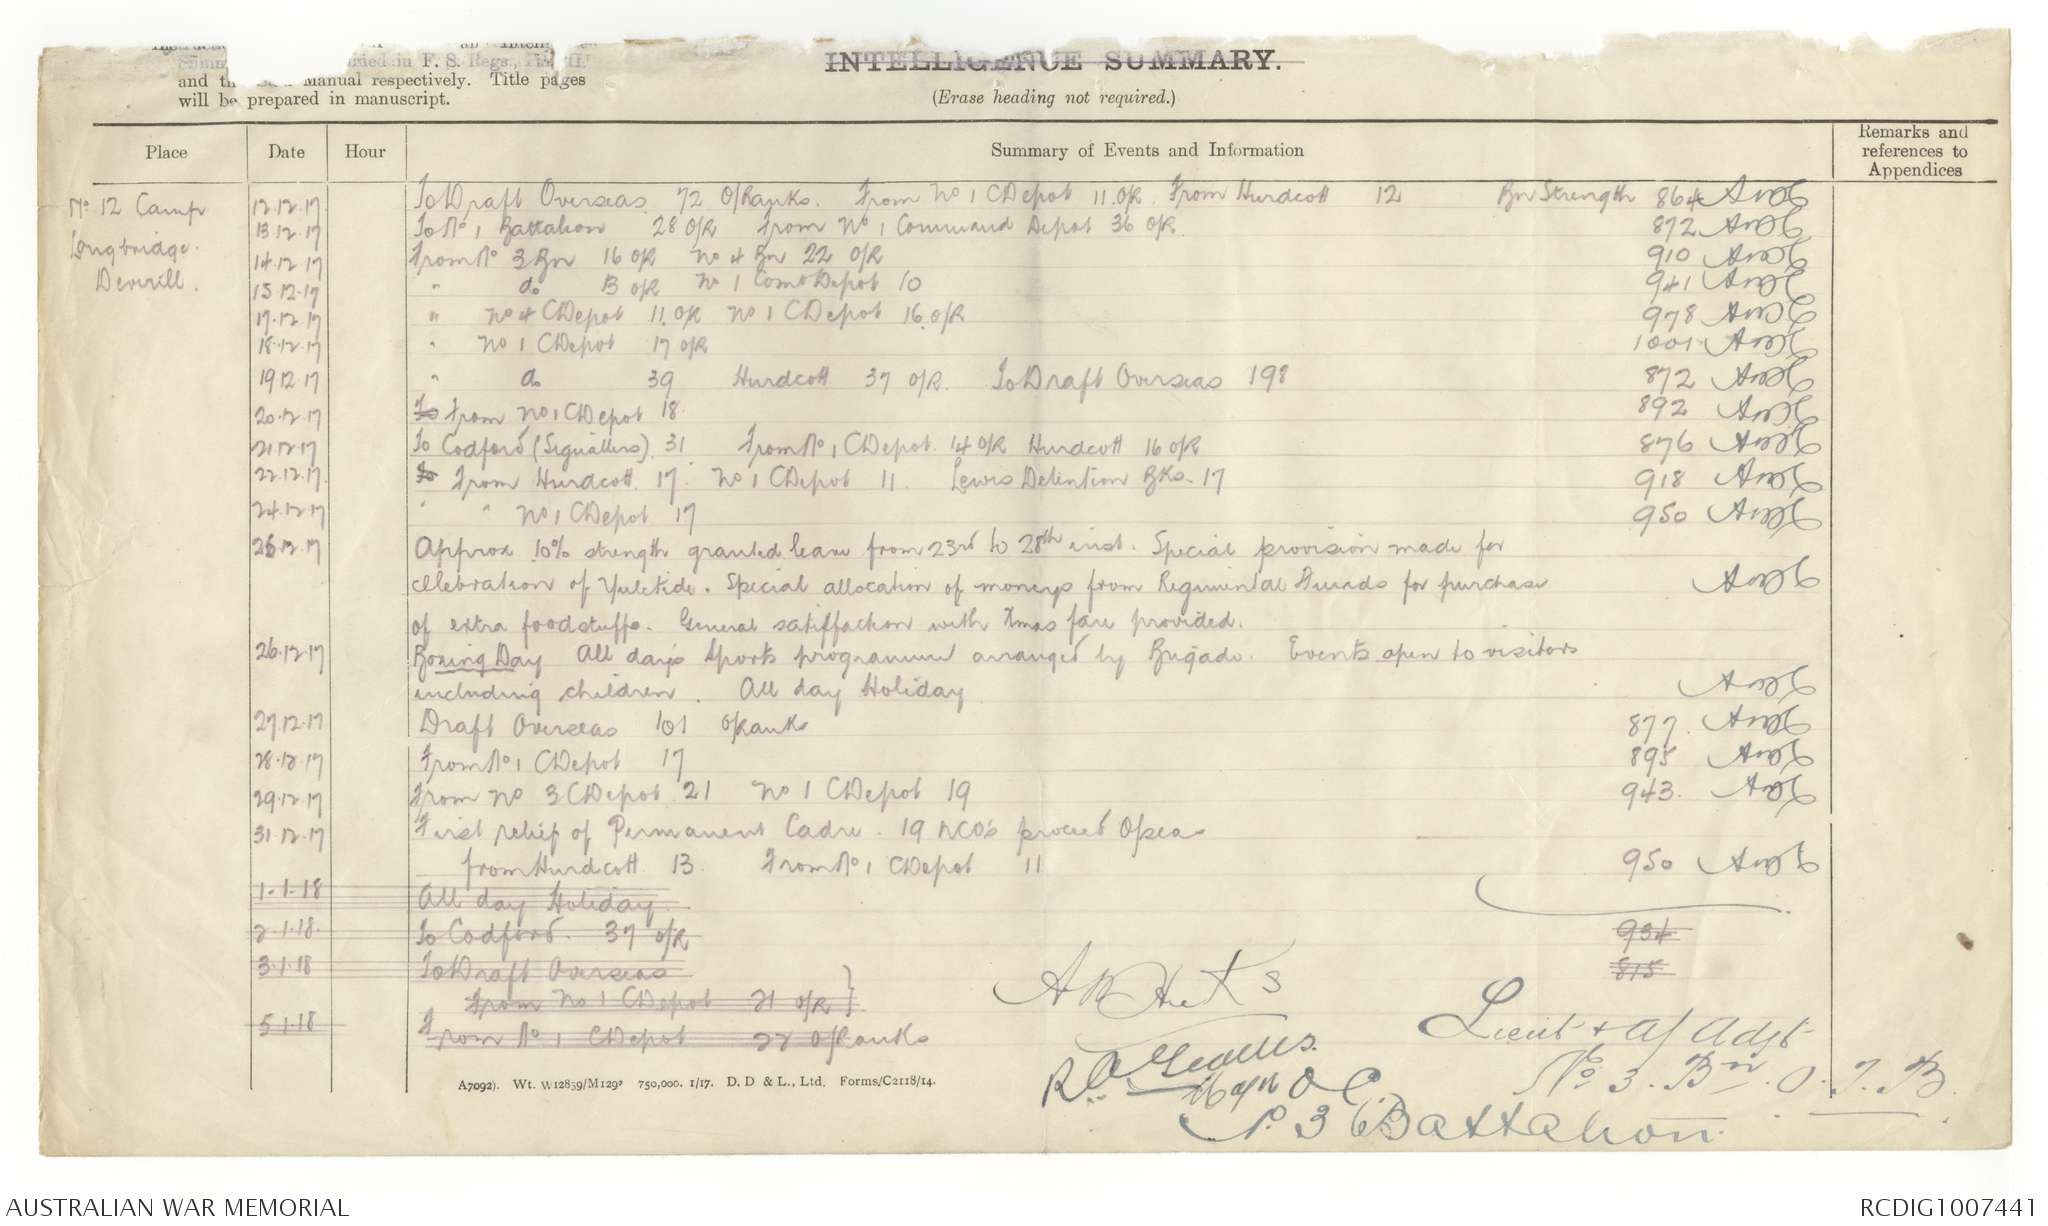 and
Manual respectively. Title pages
will be prepared in manuscript.
INTELLIGENCE SUMMARY.
(Erase heading not required.)
Place Date Hour Summary of Events and Information Remarks and references to Appendices
No 12 Camp 12.12.17 To Draft Overseas 72 O/Ranks. From No 1 CDepot 11 O/R. From Hurdcott 12 Bn Strength 864
Longbridge 13.12.17 To No 1 Battalion 28 O/R From No 1 Command Depot 36 O/R. 872
Deverill. 14.12.17 From No 3 Bn 16 O/R No 4 Bn 22 O/R 910
15.12.17 " do 13 O/R No 1 Comd Depot 10 941
17.12.17 " No 4 CDepot 11 O/R No 1 CDepot 16 O/R 978
18.12.17 " No 1 CDepot 17 O/R 1001
19.12.17 " do 39 Hurdcott 37 O/R. To Draft Overseas 198 872
20.12.17 To From No 1 CDepot 18 892
21.12.17 To Codford (Signallers) 31 From No 1 CDepot. 14 O/R Hurdcott 16 O/R 876
22.12.17. To From Hurdcott 17. No 1 CDepot 11. Lewis Detention Bks. 17 918
24.12.17 " " No 1 CDepot 17 950
25.12.17 Approx 10% strength granted leave from 23rd to 28th inst. Special provision made for
celebration of Yuletide. Special allocation of moneys from Regimental Funds for purchase
of extra foodstuffs. General satisffaction with Xmas fare provided.
26.12.17 Boxing Day All day's Sports programme arranged by Brigade. Events open to visitors
including children. All day Holiday
27.12.17 Draft Overseas 101 O/Ranks 877.
28.12.17 From No 1 CDepot 17 895
29.12.17 From No 3 CDepot 21 No 1 CDepot 19 943.
31.12.17 First relief of Permanent Cadre. 19 NCO's proceed O/sea
from Hurdcott 13. From No 1 CDepot 11 950
1.1.18 All day Holiday
2.1.18. To Codford. 37 O/R 934
3.1.18 To Draft Overseas 815
From No 1 CDepot 21 O/R
5.1.18 From No 1 CDepot 22 O/Ranks
Lieut & a/ Adjt
No 3. Bn. O. T. B.
O C
No. 3 Battalion.
A7092). Wt. W12859/M1293 750,000. 1/17. D. D & L., Ltd. Forms/C2118/14.
AUSTRALIAN WAR MEMORIAL RCDIG1007441